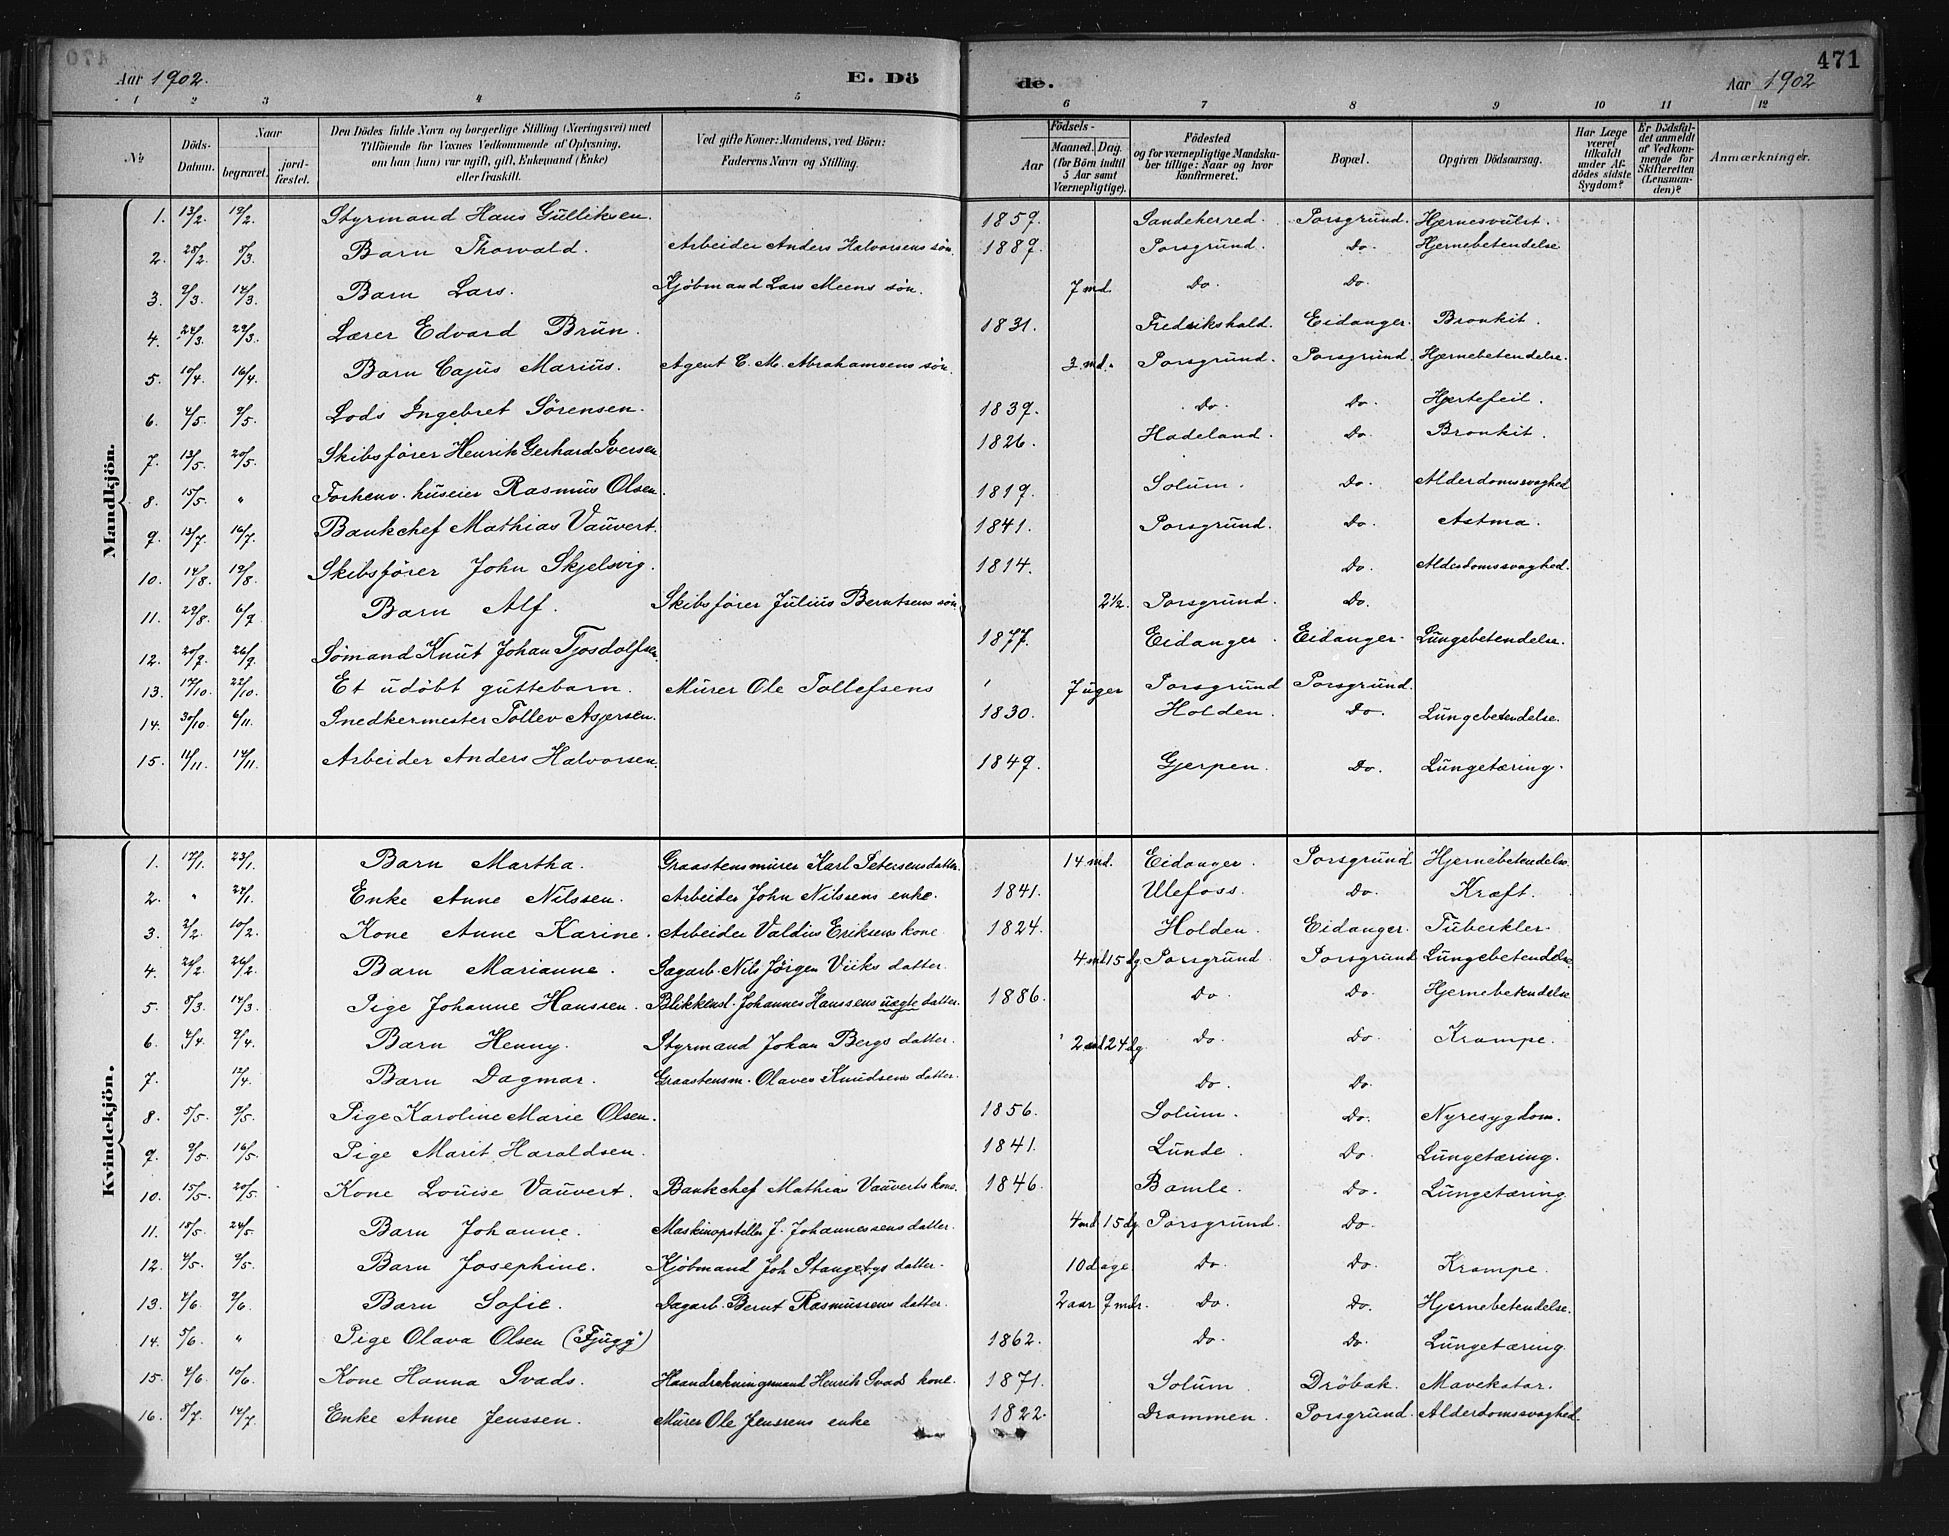 Aar 1902. E. Dö de. Aar 1902 471
1 2 3 4 5 6 7 8 9 10 11 12
No Döds-Datum. Naar begravet. jord-fæstet. Den Dödes fulde Navn og borgerlige Stilling (Næringsvei) med Tilföiende for Voxnes Vedkommende af Oplysning, om han (hun) var ugift, gift, Enkemand (Enke) eller fraskilt. Ved gifte Koner: Mandens, ved Börn: Faderens Navn og Stilling. Födsels- Aar Maaned. Dag. (for Börn indtil 5 Aar samt Værnepligtige). Födested og for værnepligtige Mandska-ber tillige: Naar og hvor konfirmeret. Bopæl. Opgiven Dödsaarsag. Har Læge været tilkaldt under Af-dödes sidste Sygdom? Er Dödsfal-det anmeldt af Vedkom-mende for Skifteretten (Lensman-den)? Anmærkninger.
Mandkjön.
1. 13/2. 19/2. Styrmand Hans Gulliksen. 1859. Sandeherred. Porsgrund. Hjernesvulst.
2. 28/2. 8/3. Barn Thorvald. Arbeider Anders Halvorsens søn. 1887. Porsgrund. Do. Hjernebetendelse
3. 9/3. 14/3. Barn Lars. Kjöbmand Lars Meens søn. 7 md. Do. Do.
4. 24/3. 29/3. Lærer Edvard Brun. 1831. Fredrikshald. Eidanger. Bronkit.
5. 10/4. 16/4. Barn Cajus Marius. Agent C. M. Abrahamsens søn. 3. md. Porsgrund. Porsgrund. Hjernebetendelse.
6. 4/5. 9/5. Lods Ingebret Sörensen. 1839. Do. Do. Hjertefeil.
7. 13/5. 20/5. Skibsförer Henrik Gerhard Iversen 1826. Hadeland. Do. Bronkit.
8. 15/5. " Forhenv. huseier Rasmus Olsen. 1819. Solum. Do. Alderdomssvaghed
9. 13/7. 16/7. Bankchef Mathias Vauvert. 1841. Porsgrund. Do. Astma.
10. 14/8. 19/8. Skibsförer John Skjelsvig. 1814. Do. Alderdomssvaghed.
11. 29/8. 6/9. Barn Alf. Skibsförer Julius Berntsens søn 2½. Porsgrund. Do.
12. 20/9. 26/9. Sömand Knut Johan Tjosdolfsen. 1877. Eidanger. Eidanger. Lungebetendelse.
13. 17/10. 22/10. Et udöbt guttebarn. Murer Ole Tollefsens 7 uger Porsgrund Porsgrund.
14. 30/10. 6/11. Snedkermester Tollev Asjersen. 1830. Holden. Do. Lungebetendelse.
15. 11/11. 14/11. Arbeider Anders Halvorsen. 1849. Gjerpen. Do. Lungetæring.
Kvindekjön.
1. 17/1. 23/1. Barn Martha. Graastensmurer Karl Petersens datter. 14 md. Eidanger. Porsgrund Hjernebetendelse
2. " 28/1. Enke Anne Nilssen. Arbeider John Nilssens enke. 1841. Ulefoss. Do. Kræft.
3. 2/2. 10/2. Kone Anne Karine. Arbeider Valdius Eriksens kone 1824. Holden. Eidanger. Tuberkler.
4. 21/2. 26/2. Barn Marianne. Sagarb. Nils Jörgen Viiks datter. 4 md 15 dg Porsgrund. Porsgrund Lungebetendelse.
5. 8/3. 14/3. Pige Johanne Hanssen. Blikkensl. Johannes Hanssens uægte datter. 1886. Do. Do. Hjernebetendelse
6. 4/4. 9/4. Barn Henny. Styrmand Johan Bergs datter. 2 md 24 dg. Do. Do. Krampe.
7. 12/4. Barn Dagmar. Graastensm. Olaves Knudsens datter. Do. Do.
8. 5/5. 9/5. Pige Karoline Marie Olsen. 1856. Solum. Do. Nyresygdom.
9. 9/5. 16/5. Pige Marit Haraldsen. 1841. Lunde. Do. Lungetæring.
10. 15/5. 20/5. Kone Louise Vauvert. Bankchef Mathias Vauverts kone. 1846. Bamle. Do. Lungetæring
11. 18/5. 24/5. Barn Johanne. Maskinopstiller J. Johannessens datter. 4 md 15 dg. Porsgrund. Do.
12. 4/5. 9/5. Barn Josephine. Kjöbmand Joh Stangebys datter. 10 dage Do. Do. Krampe.
13. 4/6. 9/6. Barn Sofie. Dagarb. Bernt Rasmussens datter. 2 aar 9 mdr. Do. Do. Hjernebetendelse.
14. 5/6. " Pige Olava Olsen ("Fjugg") 1862. Do. Do. Lungetæring
15. 4/6. 10/6. Kone Hanna Svads. Haandrækningsmand Henrik Svads kone. 1871. Solum. Dröbak. Mavekatar.
16. 8/7. 14/7. Enke Anne Jenssen. Murer Ole Jenssens enke 1822. Drammen. Porsgrund. Alderdomssvaghed.